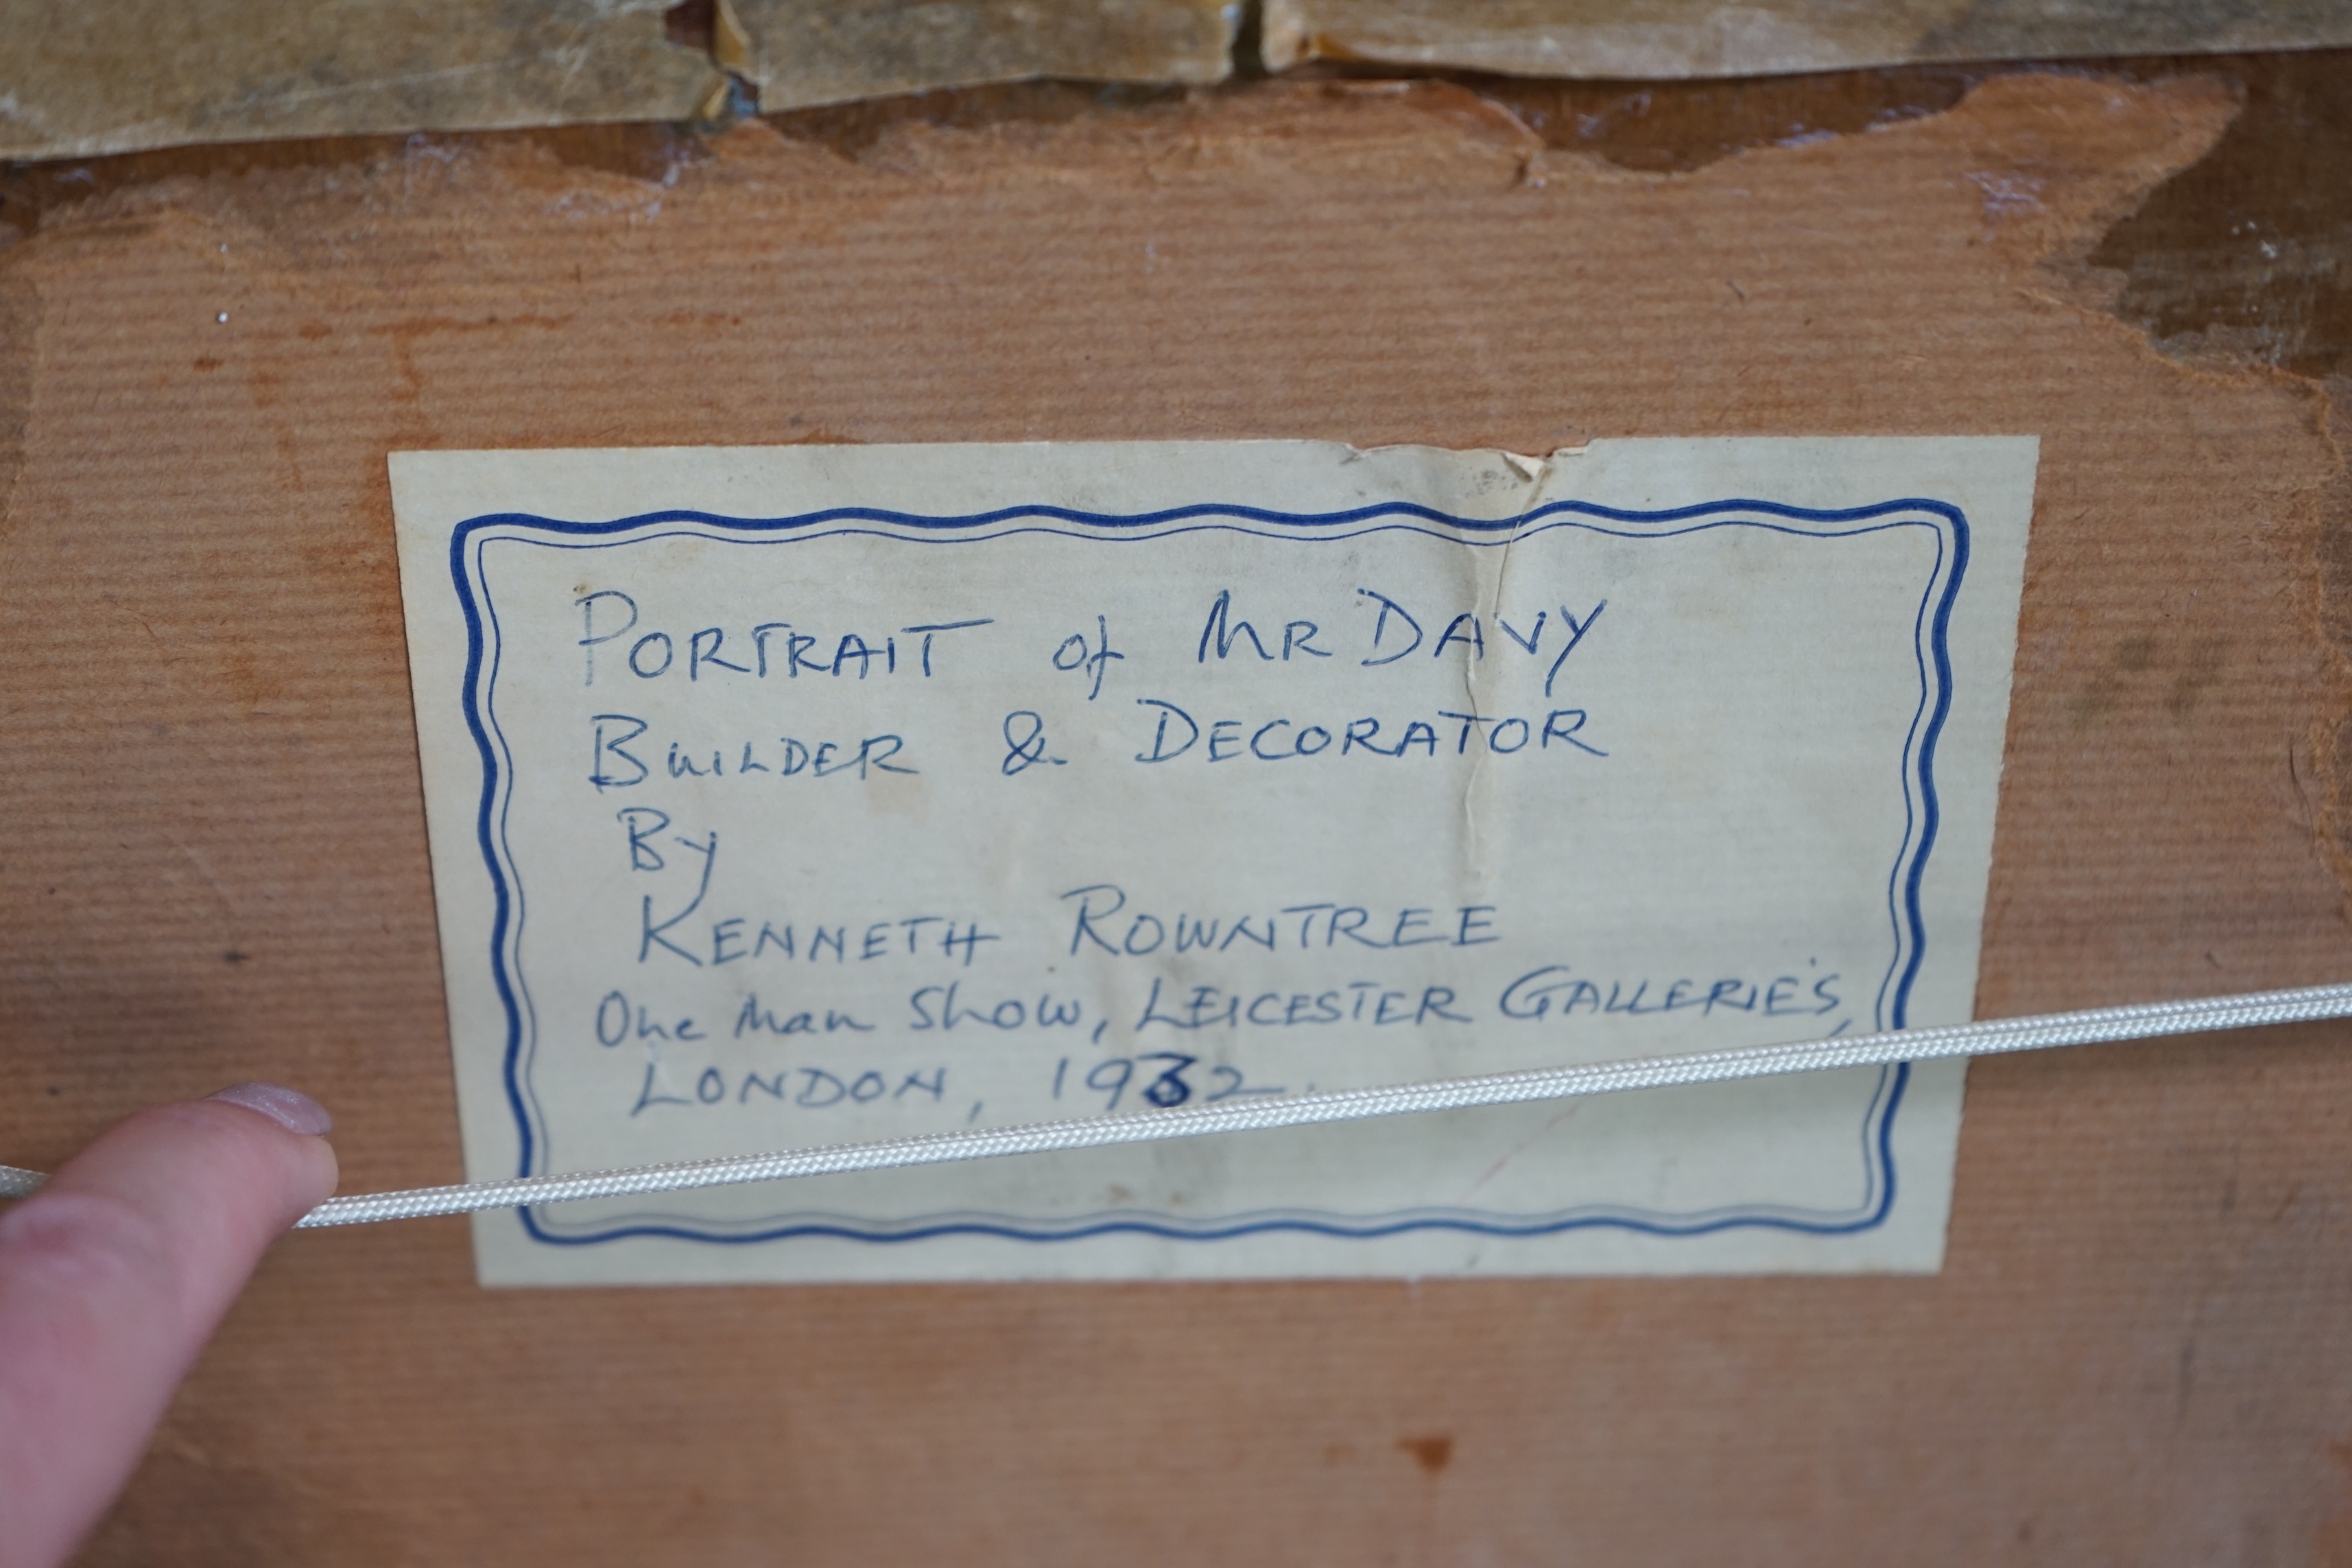 PORTRAIT of MR DAVY
BUILDER & DECORATOR
By
KENNETH ROWNTREE
One Man Show, LEICESTER GALLERIE'S,
LONDON,